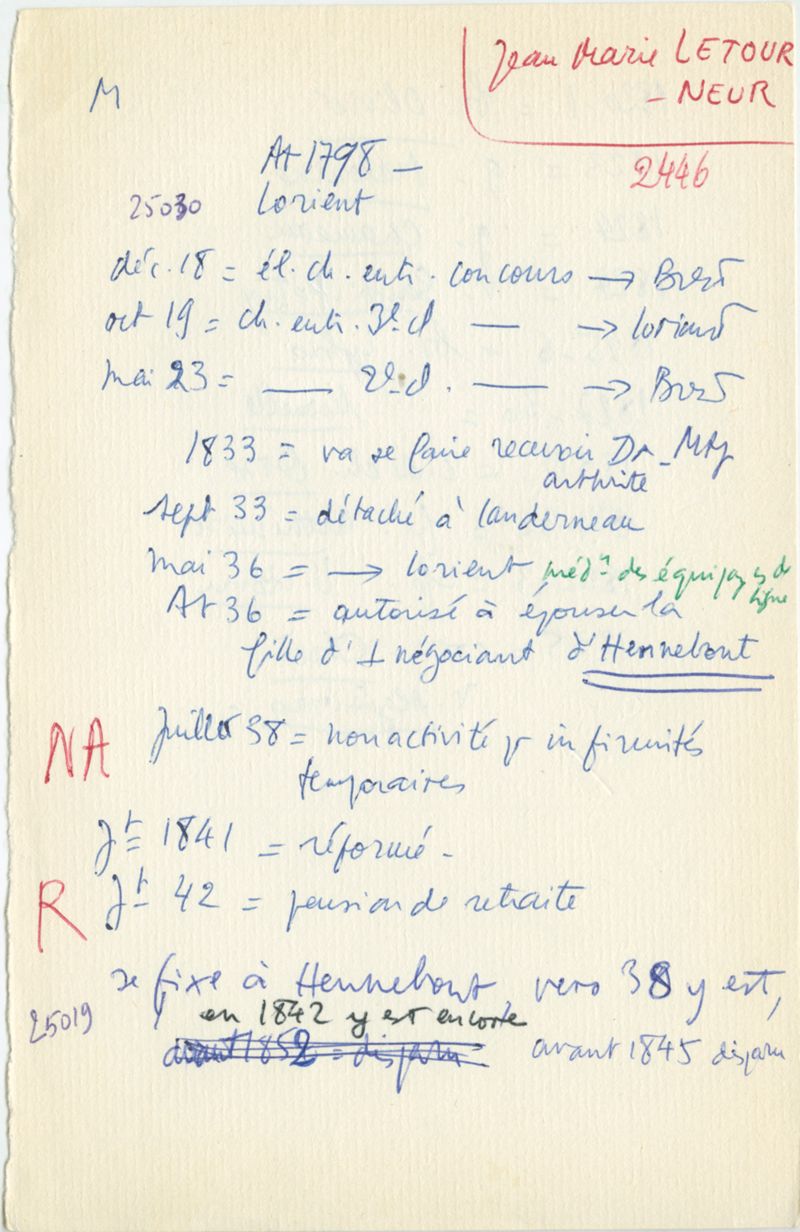 Jean Marie LETOUR
- NEUR
M
2446
At 1798 -
25030 Lorient
déc. 18 = él. ch. enti. concours → Brest
oct 19 = ch. enti. 3e cl — → Lorient
mai 23 = — 2e cl. — → Brest
1833 = va se faire recevoir Dr - Mtp
arthrite
sept 33 = détaché à Landerneau
mai 36 = → Lorient méd.n des équipages de
ligne
At 36 = autorisé à épouser la
fille d'1 négociant d'Hennebont
NA Juillet 38 = non activité pr infirmités
temporaires
Jt 1841 = réformé -
R Jt 42 = pension de retraite
se fixe à Hennebont vers 38 y est,
en 1842 y est encore
25019 avant 1852 = disparu avant 1845 disparu